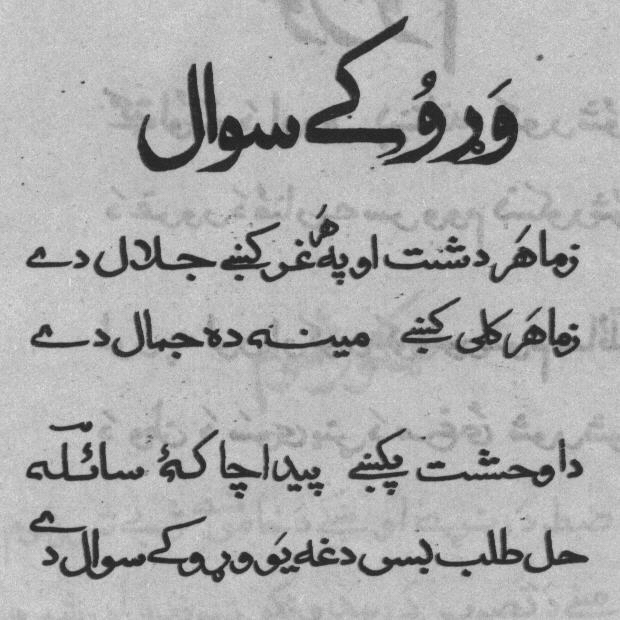 وَړوُکے سوال
زما هَر دشت او په هَر غر کښے جلال دے
زما هَر کلی کښے مینه ده جمال دے
دا وحشت پکښے پیدا چا کۀ سائله
حل طلب بس دغه یَو وړوکے سوال دے